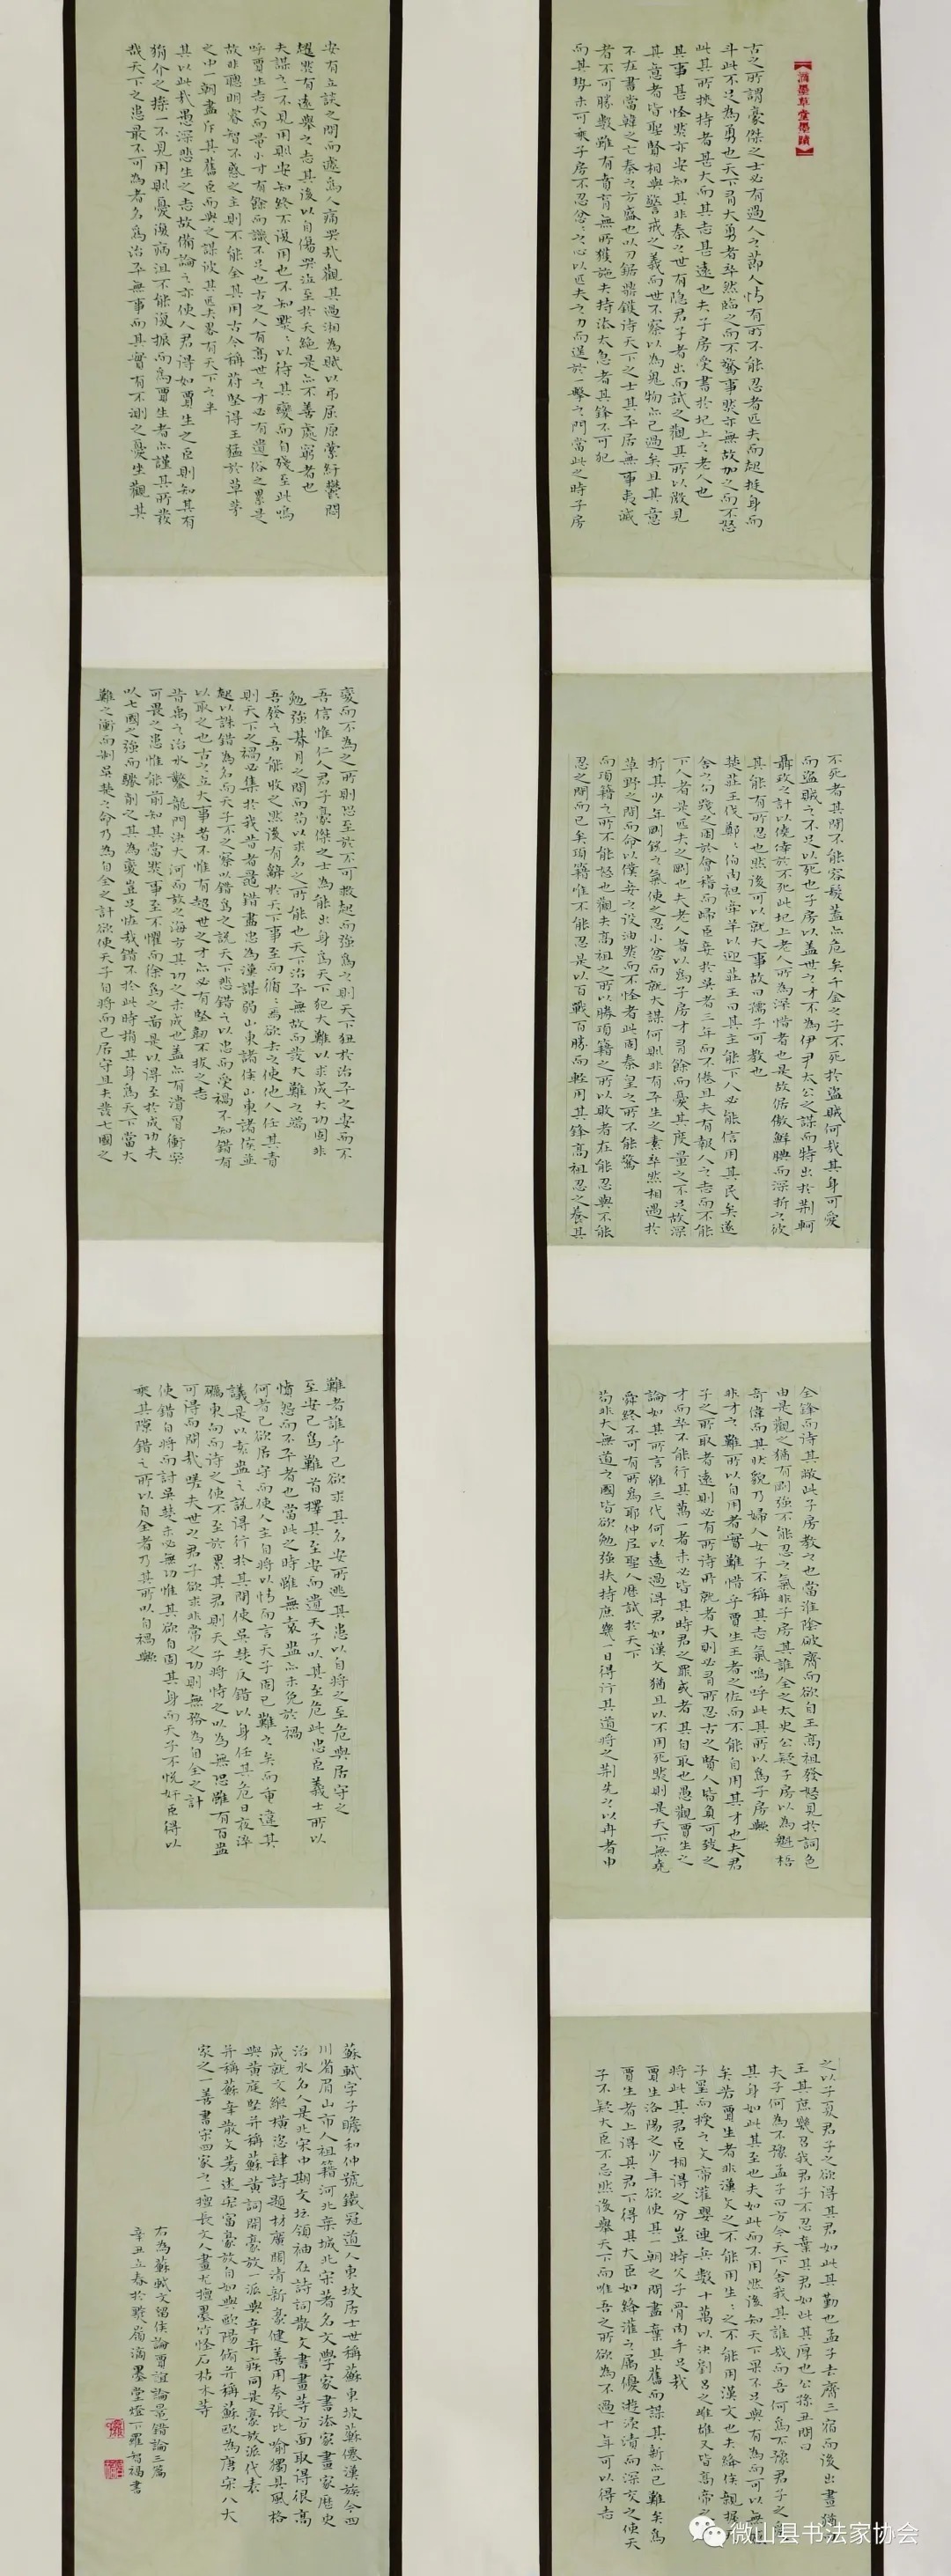 【滴墨草堂墨蹟】
古之所謂豪傑之士必有過人之節人情有所不能忍者匹夫而起挺身而
斗此不足為勇也天下有大勇者卒然臨之而不驚事然亦無故加之而不怒
此其所挾持者甚大而其志甚遠也夫子房受書於圯上之老人也
其事甚怪然亦安知其非秦之世有隐君子者出而試之觀其所以微見
其意者皆聖賢相與警戒之義而世不察以為鬼物亦已過矣且其意
不在書當韓之亡秦之方盛也以刀鋸鼎鑊待天下之士其平居無事夷滅
者不可勝數雖有賁育無所獲施夫持法太急者其鋒不可犯
而其勢未可乘子房不忍忿之之心以匹夫之力而逞於一擊之間當此之時子房
不死者其間不能容髮蓋亦危矣千金之子不死於盜賊何哉其身可愛
而盜賊之不足以死也子房以蓋世之才不為伊尹太公之謀而特出於荆軻
聶政之計以僥倖於不死此圯上老人所為深惜者也是故倨傲鮮腆而深折之彼
其能有所忍也然後可以就大事故曰孺子可教也
楚莊王伐鄭鄭伯肉袒牽羊以迎莊王曰其主能下人必能信用其民矣遂
舍之句踐之困於會稽而歸臣妾於吳者三年而不倦且夫有報人之志而不能
下人者是匹夫之剛也夫老人者以為子房才有餘而憂其度量之不足故深
折其少年剛銳之氣使之忍小忿而就大謀何則非有平生之素卒然相遇於
草野之間而命以僕妾之役油然而不怪者此固秦皇之所不能驚
而項籍之所不能怒也觀夫高祖之所以勝項籍之所以敗者在能忍與不能
忍之間而已矣項籍惟不能忍是以百戰百勝而輕用其鋒高祖忍之養其
全鋒而待其敝此子房教之也當淮陰破齊而欲自王高祖發怒見於詞色
由是觀之猶有剛強不能忍之氣非子房其誰全之太史公疑子房以為魁梧
奇偉而其狀貌乃婦人女子不稱其志氣嗚呼此其所以為子房歟
非才之難所以自用者實難惜乎賈生王者之佐而不能自用其才也夫君
子之所取者遠則必有所待所就者大則必有所忍古之賢人皆負可致之
才而卒不能行其萬一者未必皆其時君之罪或者其自取也愚觀賈生之
論如其所言雖三代何以遠過得君如漢文猶且以不用死然則是天下無堯
舜終不可有所為耶仲尼聖人歷試於天下
苟非大無道之國皆欲勉強扶持庶幾一日得行其道將之荆先之以冉者申
之以子夏君子之欲得其君如此其勤也孟子去齊三宿而後出晝猶曰
王其庶幾召我君子不忍棄其君如此其厚也公孫丑問曰
夫子何為不豫孟子曰方今天下舍我其誰哉而吾何為不豫君子之愛
其身如此其至也夫如此而不用然後知天下果不足與有為而可以無憾
矣若賈生者非漢文之不能用生生之不能用漢文也夫絳侯親握天
子璽而授之文帝灌嬰連兵數十萬以決劉呂之雌雄又皆高帝之舊
將此其君臣相得之分豈特父子骨肉手足哉
賈生洛陽之少年欲使其一朝之間盡棄其舊而謀其新亦已難矣為
賈生者上得其君下得其大臣如絳灌之屬優遊浸漬而深交之使天
子不疑大臣不忌然後舉天下而唯吾之所欲為不過十年可以得志
安有立談之間而遽為人痛哭哉觀其過湘為賦以吊屈原縈紆鬱悶
趯然有遠舉之志其後以自傷哭泣至於夭絕是亦不善處窮者也
夫謀之一不見用則安知終不復用也不知默默以待其變而自殘至此嗚
呼賈生志大而量小才有餘而識不足也古之人有高世之才必有遺俗之累是
故非聰明睿智不惑之主則不能全其用古今稱苻堅得王猛於草茅
之中一朝盡斥其舊臣而與之謀彼其匹夫略有天下之半
其以此哉愚深悲生之志故備論之亦使人君得如賈生之臣則知其有
狷介之操一不見用則憂傷病沮不能復振而為賈生者亦謹其所發
哉天下之患最不可為者名為治平無事而其實有不測之憂坐觀其
變而不為之所則恐至於不可救起而強為之則天下狃於治平之安而不
吾信惟仁人君子豪傑之士為能出身為天下犯大難以求成大功固非
勉強期月之間而苟以求名之所能也天下治平無故而發大難之端
吾發之吾能收之然後有辭於天下事至而循循焉欲去之使他人任其責
則天下之禍必集於我昔者晁錯盡忠為漢謀弱山東諸侯山東諸侯並
起以誅錯為名而天子不之察以錯為之說天下悲錯之以忠而受禍不知錯有
以取之也古之立大事者不惟有超世之才亦必有堅韌不拔之志
昔禹之治水鑿龍門決大河而放之海方其功之未成也蓋亦有潰冒衝突
可畏之患惟能前知其當然事至不懼而徐為之圖是以得至於成功夫
以七國之強而驟削之其為變豈足怪哉錯不於此時捐其身為天下當大
難之衝而制吳楚之命乃為自全之計欲使天子自將而己居守且夫發七國之
難者誰乎己欲求其名安所逃其患以自將之至危與居守之
至安己為難首擇其至安而遺天子以其至危此忠臣義士所以
憤怨而不平者也當此之時雖無袁盎亦未免於禍
何者己欲居守而使人主自將以情而言天子固已難之矣而重違其
議是以袁盎之說得行於其間使吳楚反錯以身任其危日夜淬
礪東向而待之使不至於累其君則天子將恃之以為無恐雖有百盎
可得而間哉嗟夫世之君子欲求非常之功則無務為自全之計
使錯自將而討吳楚未必無功惟其欲自固其身而天子不悅奸臣得以
乘其隙錯之所以自全者乃其所以自禍歟
蘇軾字子瞻和仲號鐵冠道人東坡居士世稱蘇東坡蘇僊漢族今四
川省眉山市人祖籍河北欒城北宋著名文學家書法家畫家歷史
治水名人是北宋中期文坛領袖在詩詞散文書畫等方面取得很高
成就文縱橫恣肆詩題材廣闊清新豪健善用夸張比喻獨具風格
與黃庭堅并稱蘇黃詞開豪放一派與辛弃疾同是豪放派代表
并稱蘇辛散文著述宏富豪放自如與歐陽脩并稱蘇歐為唐宋八大
家之一善書宋四家之一擅長文人畫尤擅墨竹怪石枯木等
右為蘇軾文留侯論賈誼論晁錯論三篇
辛丑立春於嶺滴墨堂燈下羅福書
微山县书法家协会